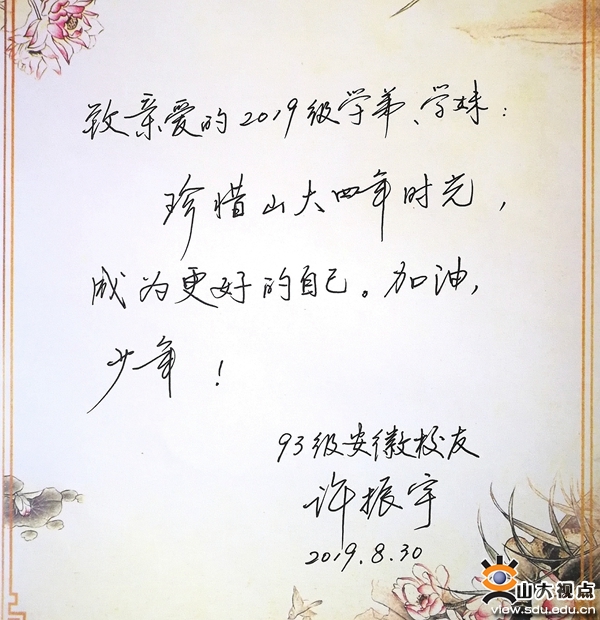 致亲爱的2019级学弟、学妹：
珍惜山大四年时光，
成为更好的自己。加油，
少年！
93级安徽校友
许振宇
2019.8.30
山大视点
view.sdu.edu.cn